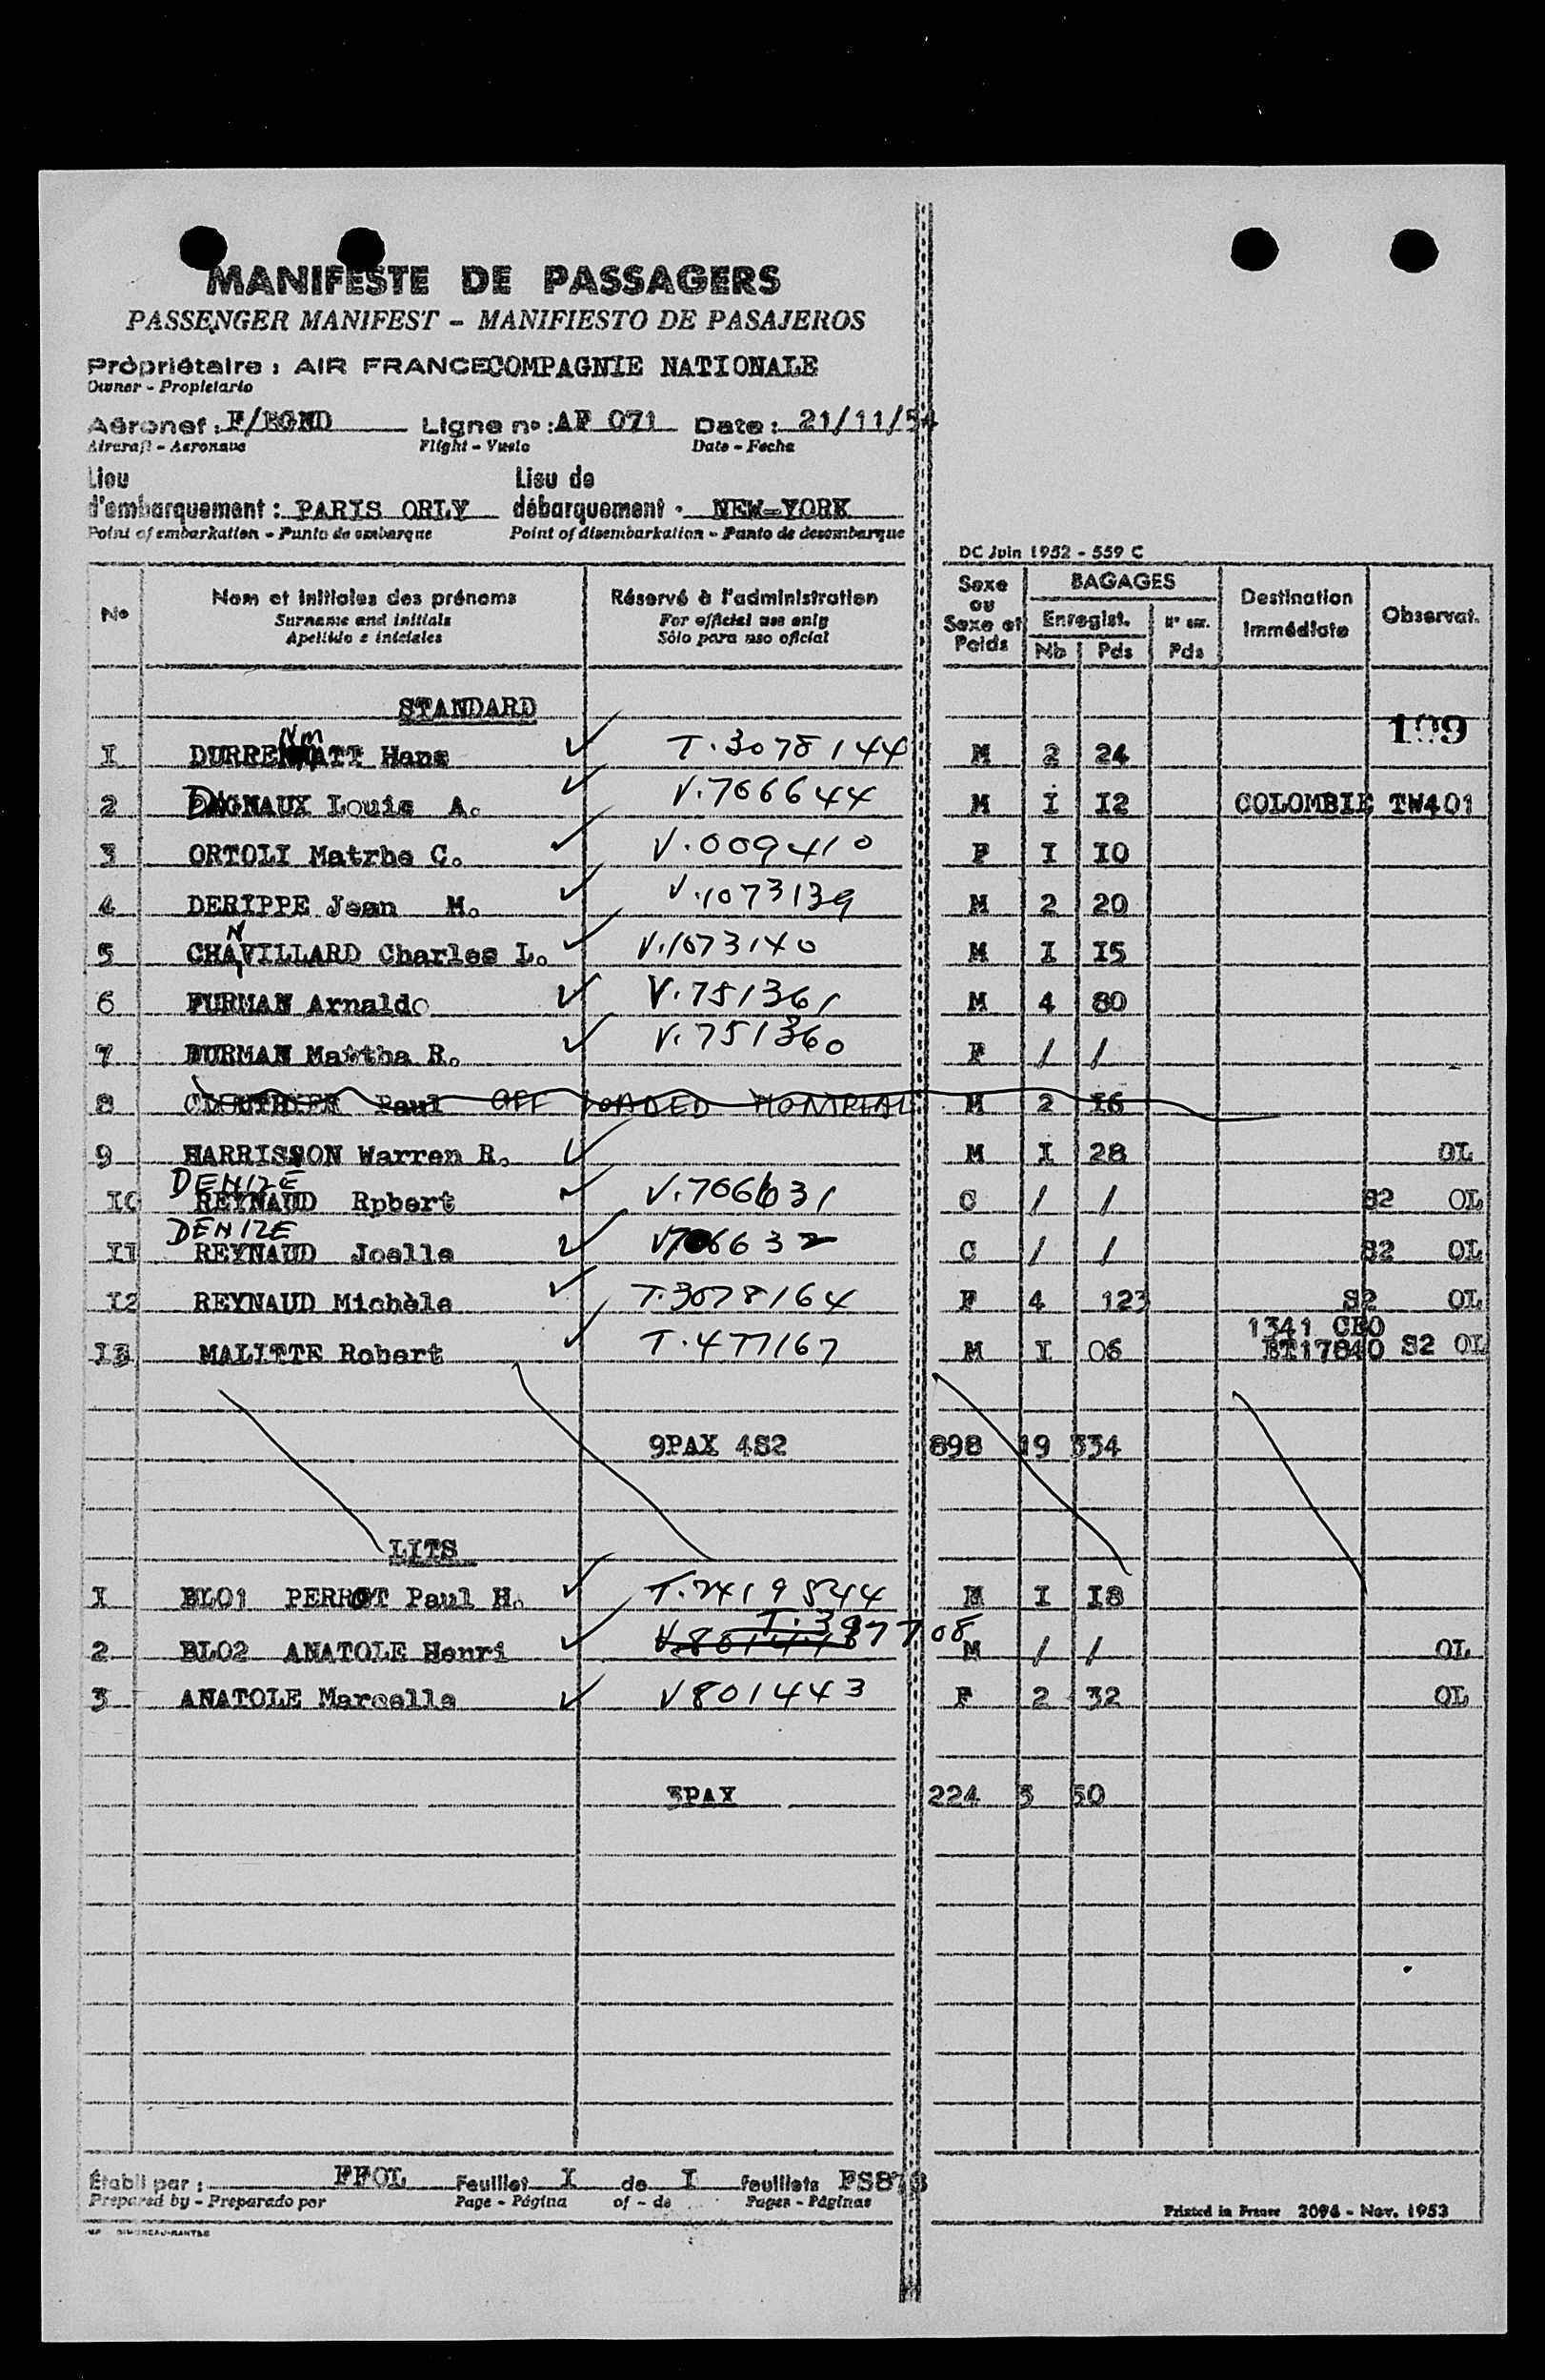 MANIFESTE DE PASSAGERS
PASSENGER MANIFEST - MANIFIESTO DE PASAJEROS
Propriétaire : AIR FRANCE COMPAGNIE NATIONALE
Owner - Propietario
Aéronef : F/BGND Ligne n° : AF 071 Date : 21/11/54
Aircraft - Aeronave Flight - Vuelo Date - Fecha
Lieu Lieu de
d'embarquement : PARIS ORLY débarquement : NEW-YORK
Point of embarkation - Punto de embarque Point of disembarkation - Punto de desembarque
DC Juin 1952 - 559 C
No Nom et initiales des prénoms Réservé à l'administration Sexe ou Sexe et Poids BAGAGES Destination immédiate Observat.
Surname and initials For official use only Enregist.
Apellido e iniciales Sólo para uso oficial Nb Pds Pds
STANDARD
199
I DURRENMATT Hans T.3078144 M 2 24
2 DAGNAUX Louis A. V.706644 M I I2 COLOMBIE TW401
3 ORTOLI Matrhe C. V.009410 F I I0
4 DERIPPE Jean M. V.1073139 M 2 20
5 CHANVILLARD Charles L. V.1073140 M I I5
6 FURMAN Arnaldo V.751361 M 4 80
7 FURMAN Mattha R. V.751360 F / /
8 Paul OFF LOADED MONTREAL M 2 I6
9 HARRISSON Warren R. M I 28 OL
DENIZE
I0 REYNAUD Rpbert V.706631 C / / S2 OL
DENIZE
II REYNAUD Joelle V706632 C / / S2 OL
I2 REYNAUD Michèle T.3078164 F 4 123 S2 OL
1341 CEO
I3 MALITTE Robert T.477167 M I 06 BT17840 S2 OL
9PAX 4S2 898 19 334
LITS
I BL01 PERROT Paul H. T.2419544 M I I8
2 BL02 ANATOLE Henri T.397708 M / / OL
3 ANATOLE Marcelle V801443 F 2 32 OL
3PAX 224 3 50
Établi par : FFOL Feuillet I de I feuillets PS878
Prepared by - Preparado por Page - Página of - de Pages - Páginas
Printed in France 2096 - Nov. 1953